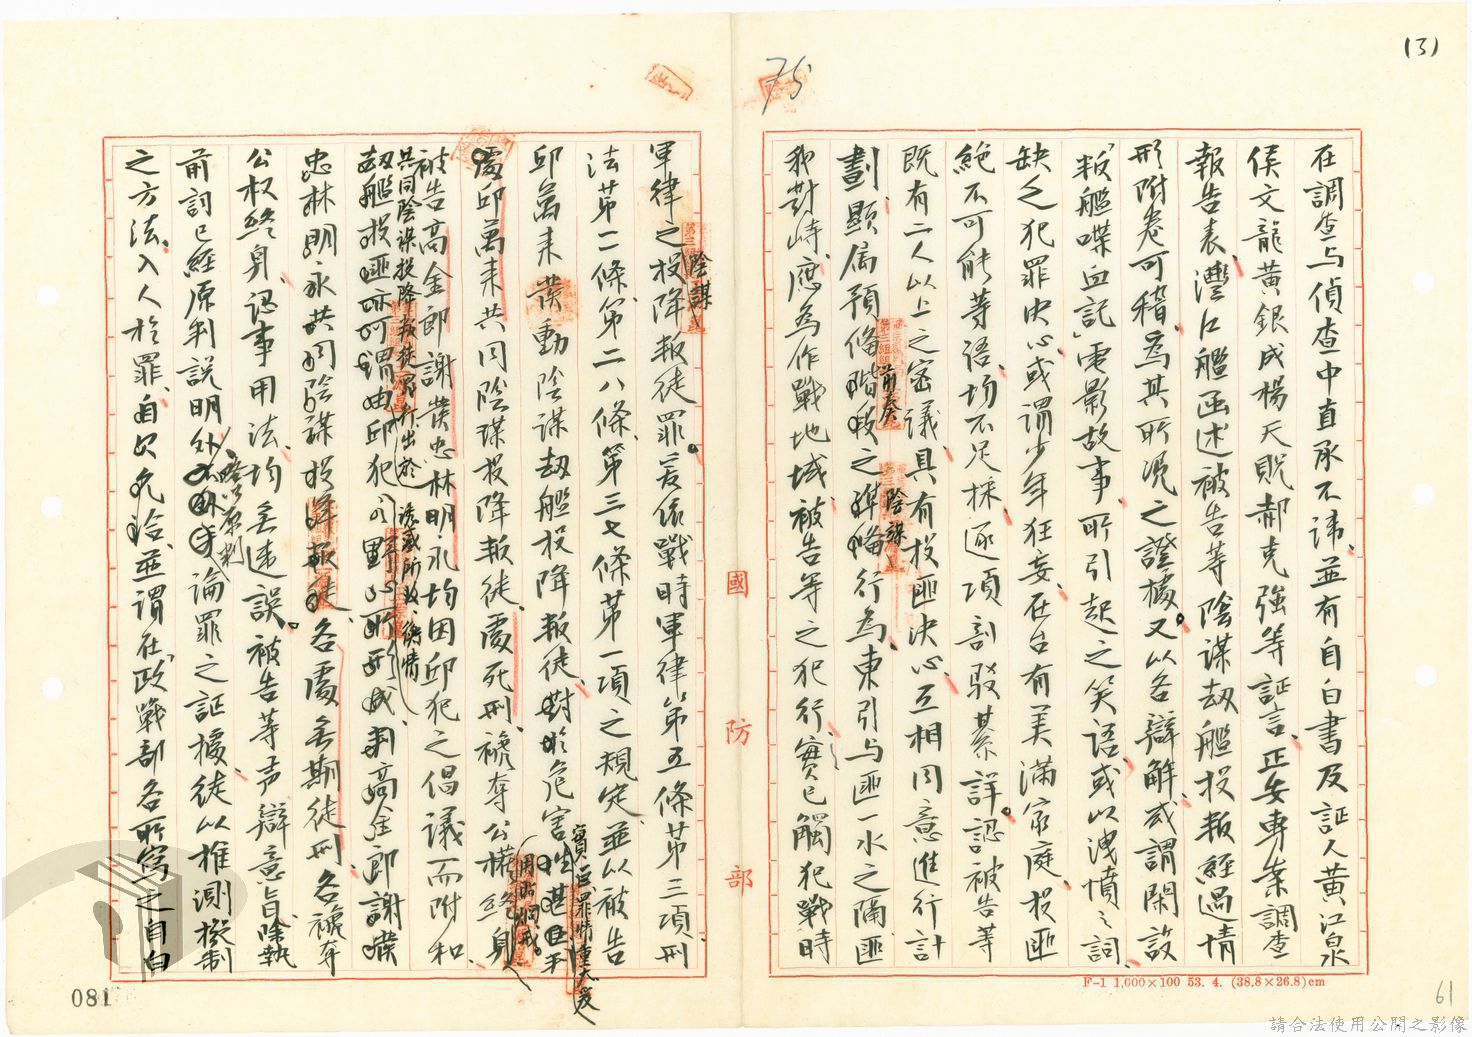 (3)
75
在調查与偵查中直承不諱並有自白書及証人黃江泉
侯文龍黃銀成楊天貺郝克強等証言正安專案調查
報告表灃江艦函述被告等陰謀劫艦投叛經過情
形附卷可稽為其所憑之證據又以各辯解或謂閑談
「叛艦喋血記」電影故事所引起之笑語或以洩憤之詞
缺乏犯罪決心或謂少年狂妄在台有美滿家庭投匪
絕不可能等語均不足採逐項剖駁綦詳認被告等
既有二人以上之密議具有投匪決心互相同意進行計
劃顯屬預備階段之準備行為東引与匪一水之隔匪
前奏
陰謀
我對峙應為作戰地域被告等之犯行實已觸犯戰時
軍律之投降叛徒罪爰依戰時軍律第五條第三項刑
陰謀
法第二條第二八條第三七條第一項之規定並以被告
邱萬來發動陰謀劫艦投降叛徒對於危害
實一因罪情重大爰
用昭炯戒
處邱萬來共同陰謀投降叛徒處死刑褫奪公權終身
被告高金郎謝發忠林明永均因邱犯之倡議而附和
共同陰謀投降叛徒
出於
誘惑所致
衡情
劫艦投匪亦可謂由邱犯
高金郎謝發
忠林明永共同陰謀投降叛徒各處無期徒刑各褫奪
公权終身認事用法均無違誤被告等声辯意旨除執
前詞已經原判說明外
論罪之証據徒以推測擬制
略以原判
之方法入人於罪自欠允洽並謂在政戰部各所寫之自白
國防部
F-1 1,000×100 53. 4. (38.8×26.8)cm
081
61
請合法使用公開之影像